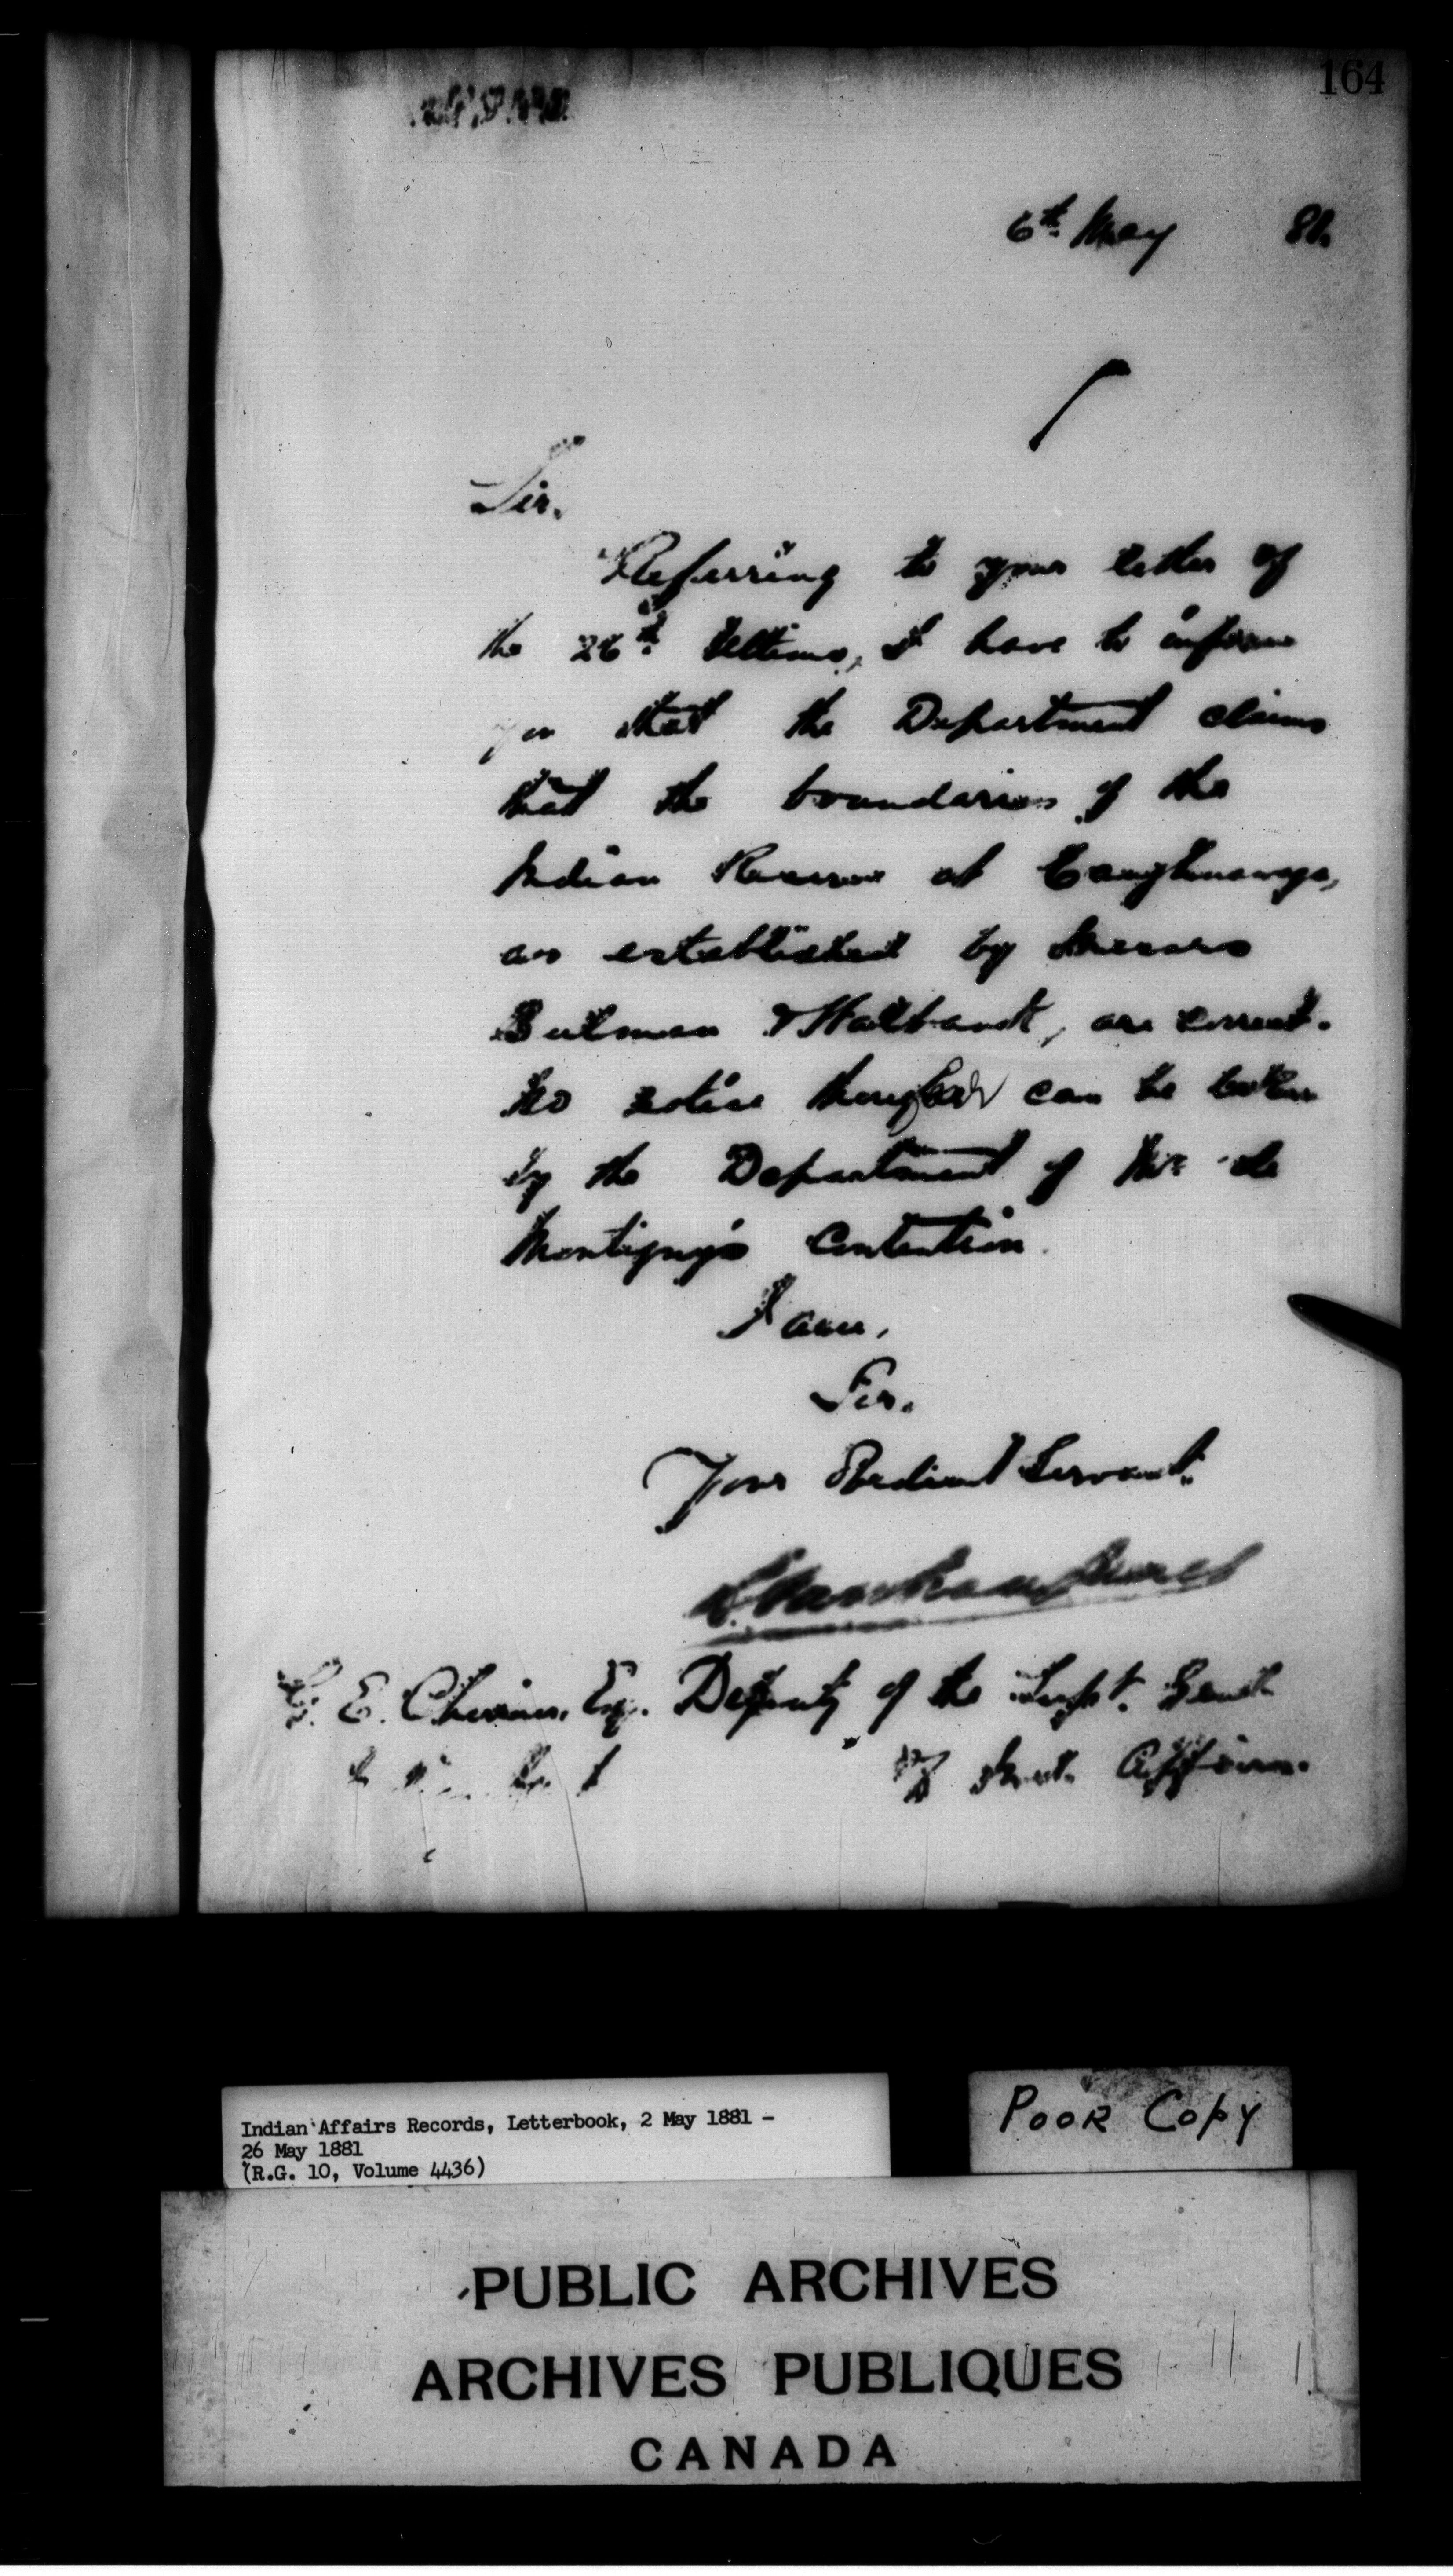 164
6th. May 81.
Sir,
Referring to your letter of
the 26th. Ultimo, I have to inform
you that the Department claims
that the boundaries of the
Indian Reserve at Caughnawaga,
as established by Messrs
&, are correct.
No notice therefore can be taken
by the Department of Mr. de
Montigny's Contention.
I am,
Sir,
Your Obedient Servant.
L Vankoughnet
E. Cherrier, Esq. Deputy of the Supt. Genl.
of Ind. Affairs.
Indian Affairs Records, Letterbook, 2 May 1881 -
26 May 1881
(R.G. 10, Volume 4436)
POOR COPY
PUBLIC ARCHIVES
ARCHIVES PUBLIQUES
CANADA